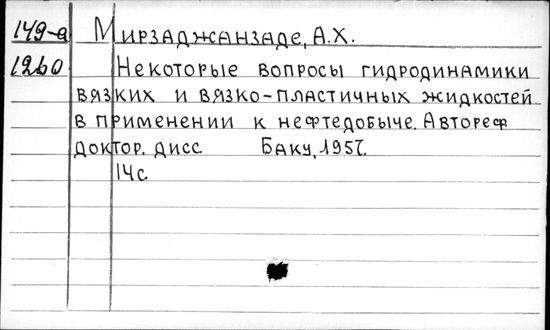 149-а Мирзаджанзаде, А.Х.
1260 Некоторые вопросы гидродинамики
вязких и вязко-пластичных жидкостей
в применении к нефтедобыче. Автореф
доктор. дисс Баку, 1957.
14с.